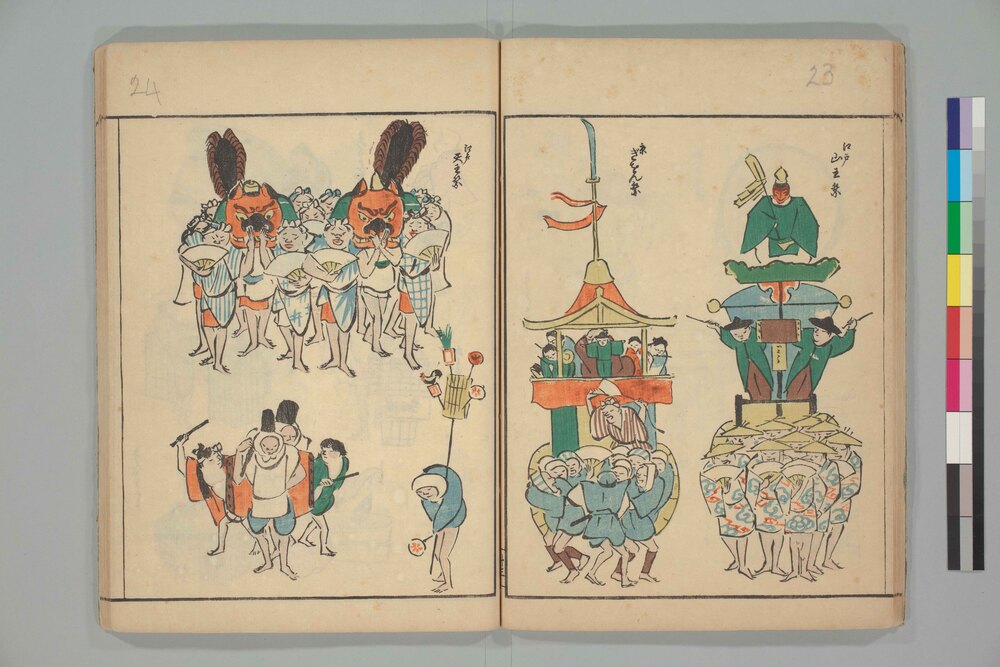 23
江戸
山王祭
京
ぎおん祭
24
江戸
天王祭